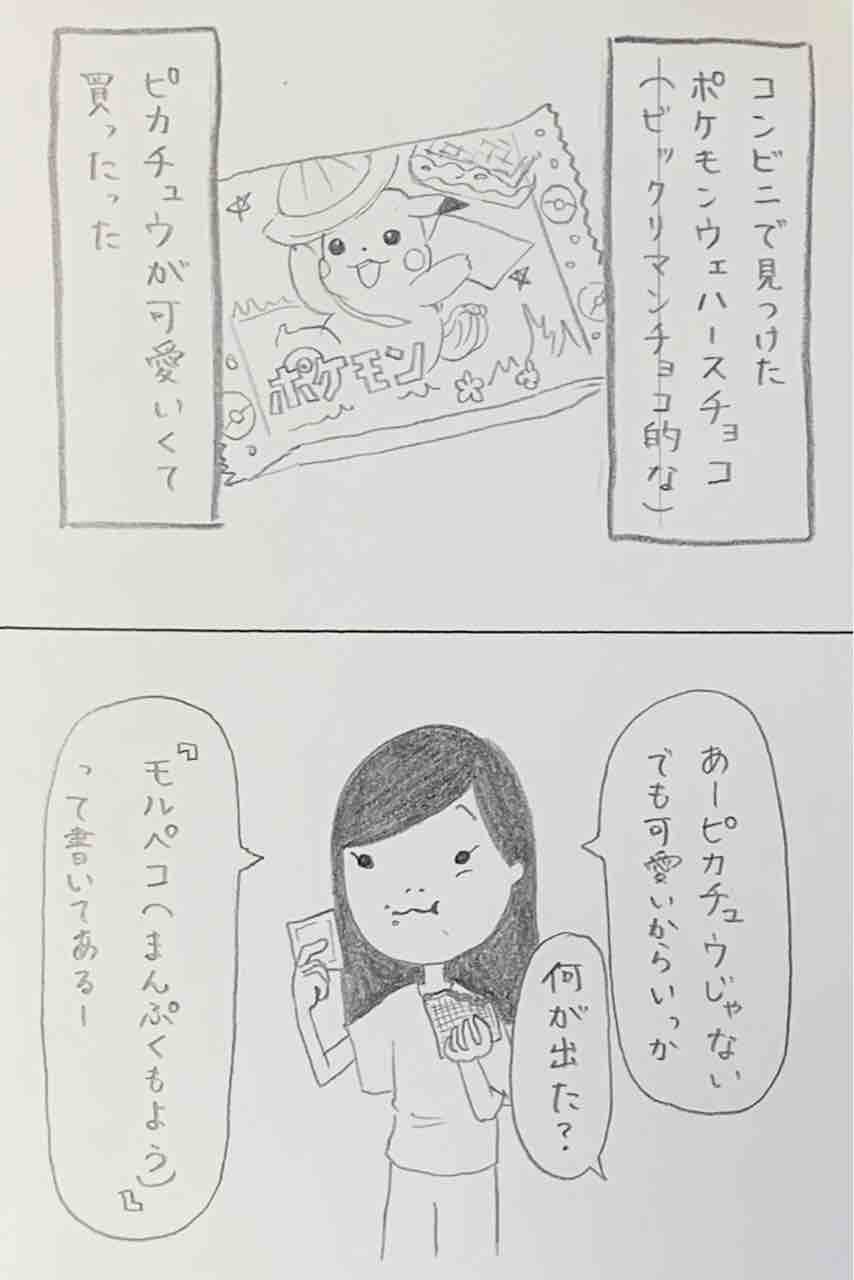 コンビニで見つけた
ポケモンウェハースチョコ
(ビックリマンチョコ的な)
ポケモン
ピカチュウが可愛いくて
買ったった
あーピカチュウじゃない
でも可愛いからいっか
何が出た?
『モルペコ(まんぷくもよう)』
って書いてあるー